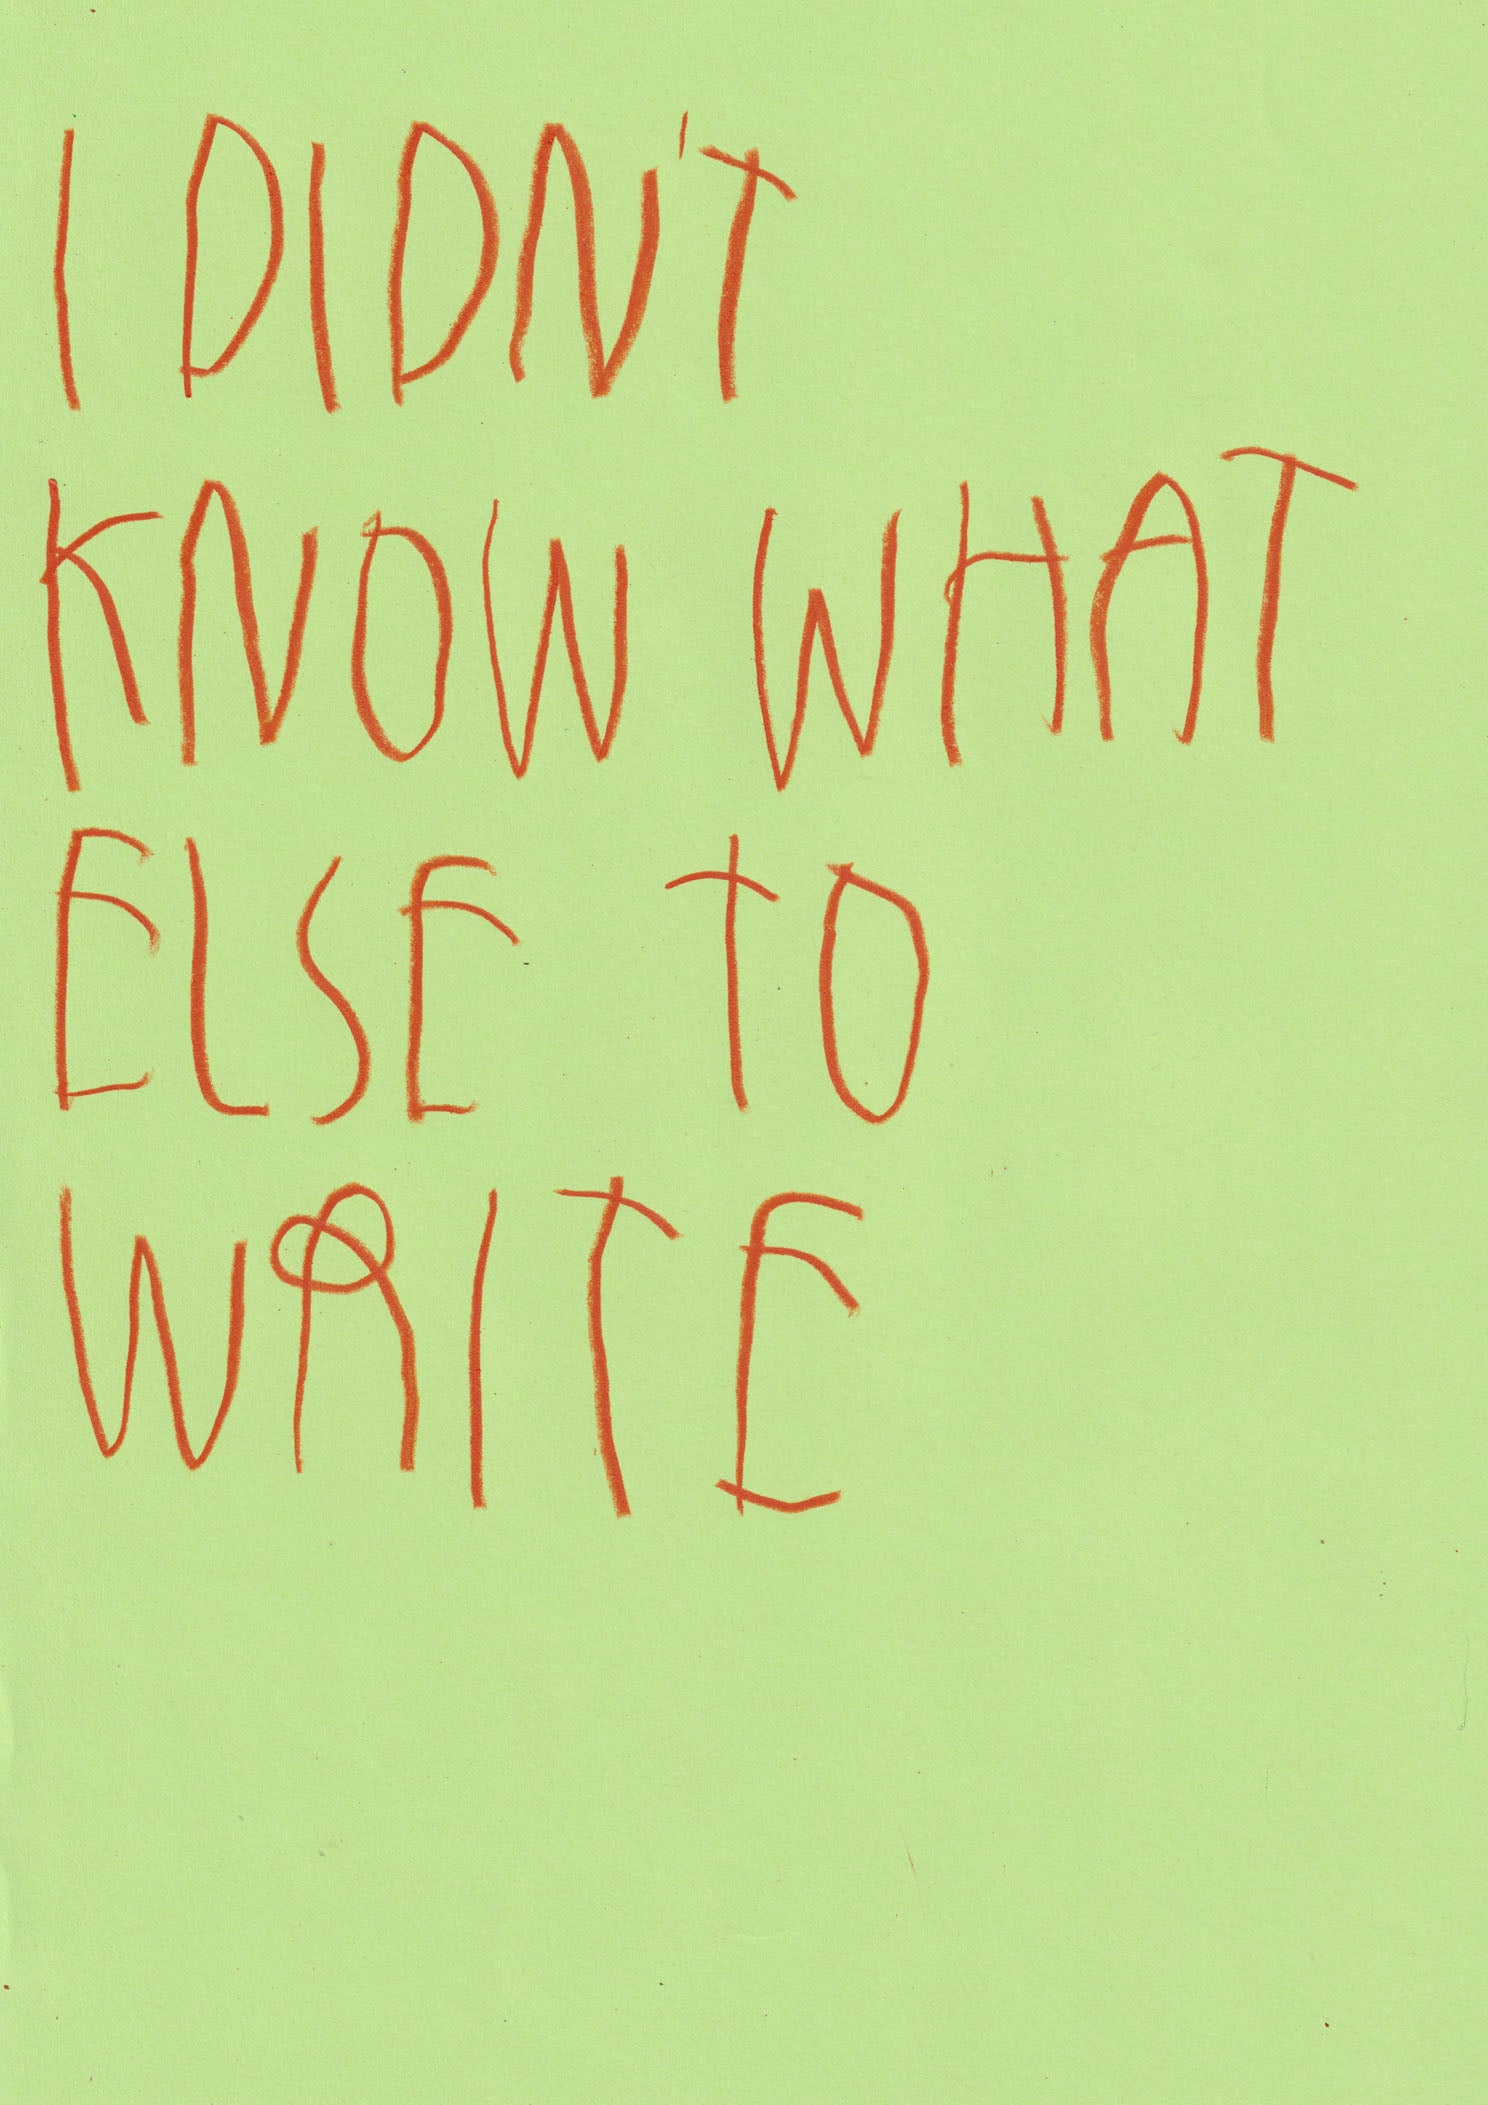 I DIDN'T
KNOW WHAT
ELSE TO
WRITE